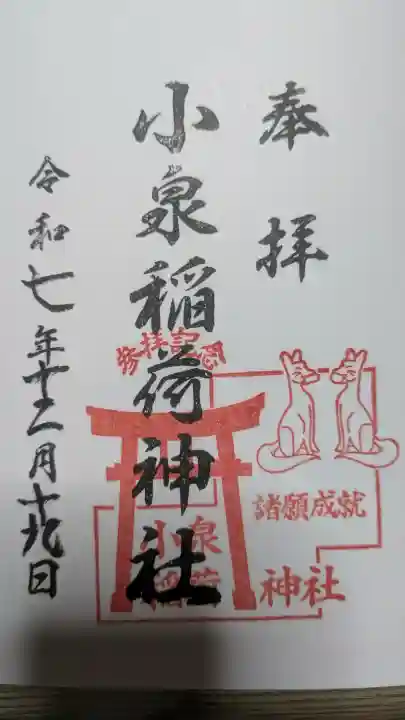 奉拝
小泉稲荷神社
令和七年十二月十九日
参拝記念
諸願成就
小泉
稲荷
神社